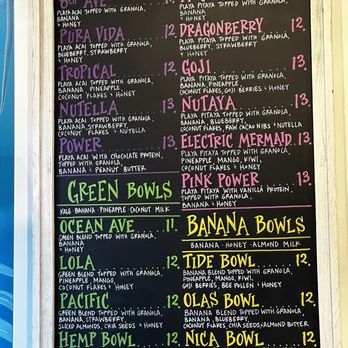 PLAYA ACAI TOPPED WITH GRANOLA,
BANANA
+ HONEY
PURA VIDA 12.
PLAYA ACAI TOPPED WITH GRANOLA,
BLUEBERRY, STRAWBERRY
+ HONEY
TROPICAL 12.
PLAYA ACAI TOPPED WITH GRANOLA,
BANANA, PINEAPPLE,
COCONUT FLAKES + HONEY
NUTELLA 13.
PLAYA ACAI TOPPED WITH GRANOLA,
BANANA, STRAWBERRY,
COCONUT FLAKES + NUTELLA
POWER 13.
PLAYA ACAI WITH CHOCOLATE PROTEIN,
TOPPED WITH GRANOLA,
BANANA + PEANUT BUTTER
GREEN BOWLS
KALE BANANA PINEAPPLE COCONUT MILK
OCEAN AVE 11.
GREEN BLEND TOPPED WITH GRANOLA,
BANANA
+ HONEY
LOLA 12.
GREEN BLEND TOPPED WITH GRANOLA,
PINEAPPLE, MANGO,
COCONUT FLAKES + HONEY
PACIFIC 12.
GREEN BLEND TOPPED WITH GRANOLA,
BANANA, STRAWBERRY,
SLICED ALMONDS, CHIA SEEDS + HONEY
HEMP BOWL 12.
PLAYA PITAYA TOPPED WITH GRANOLA,
BANANA
+ HONEY
DRAGONBERRY 12.
PLAYA PITAYA TOPPED WITH GRANOLA,
BLUEBERRY, STRAWBERRY
+ HONEY
GOJI 13.
PLAYA PITAYA TOPPED WITH GRANOLA,
BANANA,
COCONUT FLAKES, GOJI BERRIES + HONEY
NUTAYA 13.
PLAYA PITAYA TOPPED WITH GRANOLA,
BANANA, BLUEBERRY,
COCONUT FLAKES, RAW CACAO NIBS + NUTELLA
ELECTRIC MERMAID 13.
PLAYA PITAYA TOPPED WITH GRANOLA,
PINEAPPLE, MANGO, KIWI,
COCONUT FLAKES + HONEY
PINK POWER 13.
PLAYA PITAYA WITH VANILLA PROTEIN,
TOPPED WITH GRANOLA,
BANANA + HONEY
BANANA BOWLS
BANANA · HONEY · ALMOND MILK
TIDE BOWL 12.
BANANA BLEND TOPPED WITH GRANOLA,
PINEAPPLE, MANGO, KIWI,
GOJI BERRIES, BEE POLLEN + HONEY
OLAS BOWL 12.
BANANA BLEND TOPPED WITH GRANOLA,
BANANA, BLUEBERRY,
COCONUT FLAKES, CHIA SEEDS + ALMOND BUTTER
NICA BOWL 12.